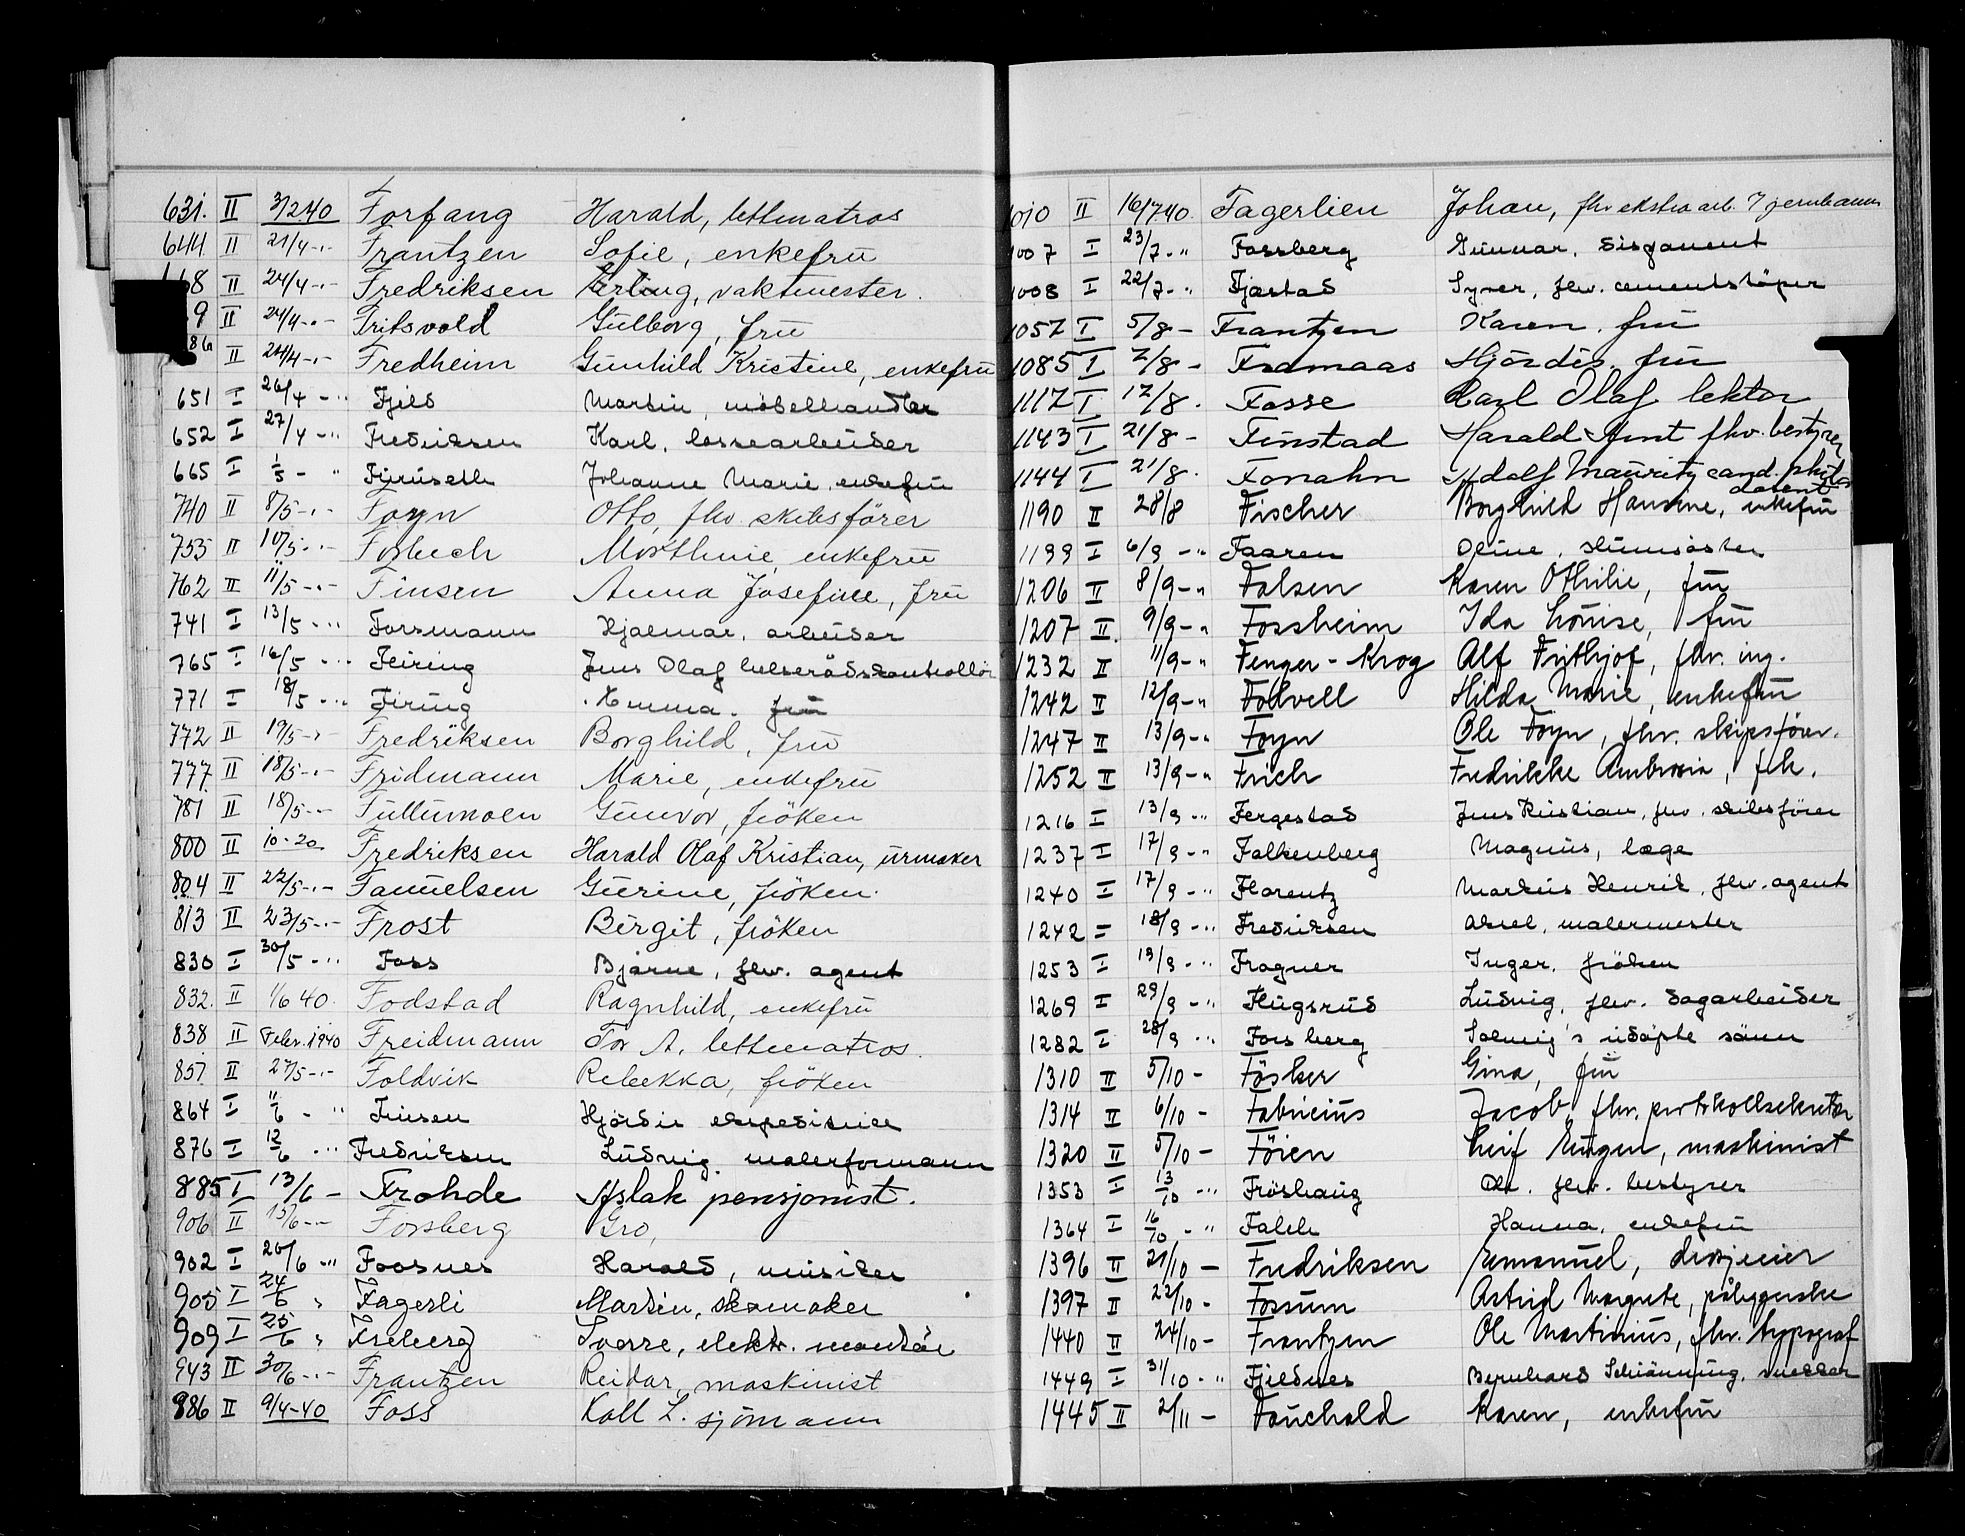 631. II 3/2 40 Forfang Harald, lettmatros
644 II 21/4 -"- Frantzen Sofie, enkefru
668 II 24/4 -"- Fredriksen Erling, vaktmester.
9 II 24/4 -"- Fritsvold Gulborg, fru
86 II 24/4 -"- Fredheim Gunhild Kristine, enkefru
651 I 26/4 -"- Fjeld Martin, möbelhandler
652 I 27/4 -"- Fredriksen Karl, lossearbeider
665 I 1/5 - " Johanne Marie enkefru
740 II 8/5 -"- Foyn Otto, fhv. skibsförer
755 II 10/5 -"- enkefru
762 II 11/5 -"- Finsen Anna Josefine, fru
741 I 13/5 -"- Forsmann Hjalmar, arbeider
765 I 16/5 -"- Feiring Jens Olaf helserådskontrollör
771 I 18/5 -"- Firing Emma. fru
772 II 19/5 -"- Fredriksen Borghild, fru
777. II 18/5 -"- Fridmann Marie, enkefru
781 II 18/5 -"- Fullumoen Gunvor, fröken
800 II 10-20 Fredriksen Harald Olaf Kristian, urmaker
804 II 22/5 -"- Famuelsen Gurine, fröken.
813 II 23/5 -"- Frost Birgit, fröken
830 I 30/5 -"- Foss Bjarne, fhv. agent
832. II 1/6 40. Fodstad Ragnhild, enkefru
838 II Febr. 1940 Freidmann Tor A. lettmatros.
857 II 27/5 -"- Foldvik Rebekka, fröken
864 I 11/6 - " Finsen Hjördis ekspeditrice
876 I 12/6 -"- Fredriksen Ludvig. malerformann
885 I 13/6 - Frohde Aslak pensjonist.
906 II 15/6 -"- Forsberg Gro,
902 I 20/6 -"- Foosnes Harald, musiker
905 I 24/6 " Fagerli Martin, skomaker
909 I 25/6 " Freberg Sverre, elektr. montör
943 II 30/6 -"- Frantzen Reidar, maskinist
886 II 9/4-40 Foss Koll L. sjömann
1010 II 16/7 40. Fagerlien Johan, fhv ekstraarb. v jernbanen
1007 I 23/7 -" Fossberg Gunnar, disponent
1008 I 22/7 -" Fjæstad Syver, fhv. cementstöper
1057 I 5/8 - Frantzen Karen. fru
1085 I 7/8 - Framaas Hjördis. fru
1117 I 17/8. Fosse Carl Olaf lektor
1143 I 21/8 - Finstad Harald Arnt fhv. bestyrer
1144 I 21/8. Fonahn Adolf Mauritz cand. philos docent
1190 II 28/8 Fischer Borghild Hansine, enkefru
1199 I 6/9 -" Faaren Oline,
1206 II 8/9 -" Falsen Karen Othilie, fru
1207 II. 9/9 -" Fossheim Ida Louise, fru
1232 II 11/9 -" Fenger-Krog Alf Frithjof, fhv. ing.
1242 II 12/9 -" Folvell Hilda Marie, enkefru
1247 II 13/9 -" Foyn Ole Foyn, fhv. skipsförer.
1252 II 13/9 -" Frich Fredrikke Ambrosia, frk.
1216 I 13/9 -" Fergestad Jens Kristian, fhv. skibsförer
1237 I 17/9 -" Falkenberg Magnus, læge
1240 I 17/9 -" Florentz Markus Henrik, fhv. agent
1242 = 18/9 -" Fredriksen Aksel, malermester
1253 I 19/9 -" Frogner Inger, fröken
1269 I 29/9 -" Flugsrud Ludvig, fhv. dagarbeider
1282 I 28/9 -" Forsberg Solveig's udöpte sönn
1310 II 5/10 - Fösker Gina, fru
1314 II 6/10 - Fabricius Jacob, fhv. protokollsekretær
1320 II 5/10 - Föien Leif Eugen, maskinist
1353 I 13/10 -" Fröshaug Ole. fhv. bestyrer
1364 I 16/10 -" Falch Hanna. enkefru
1396 II 21/10 - Fredriksen Emanuel, dixjener
1397 II 22/10 - Fossum Astrid Margrete, pölegerske
1440 II 24/10 - Frantzen Ole Martinius, fhv. typograf
1449 I 31/10 -" Fjeldnes Bernhard Schiänning. snekker
1445 II 2/11 - Fauchald Karen, enkefru